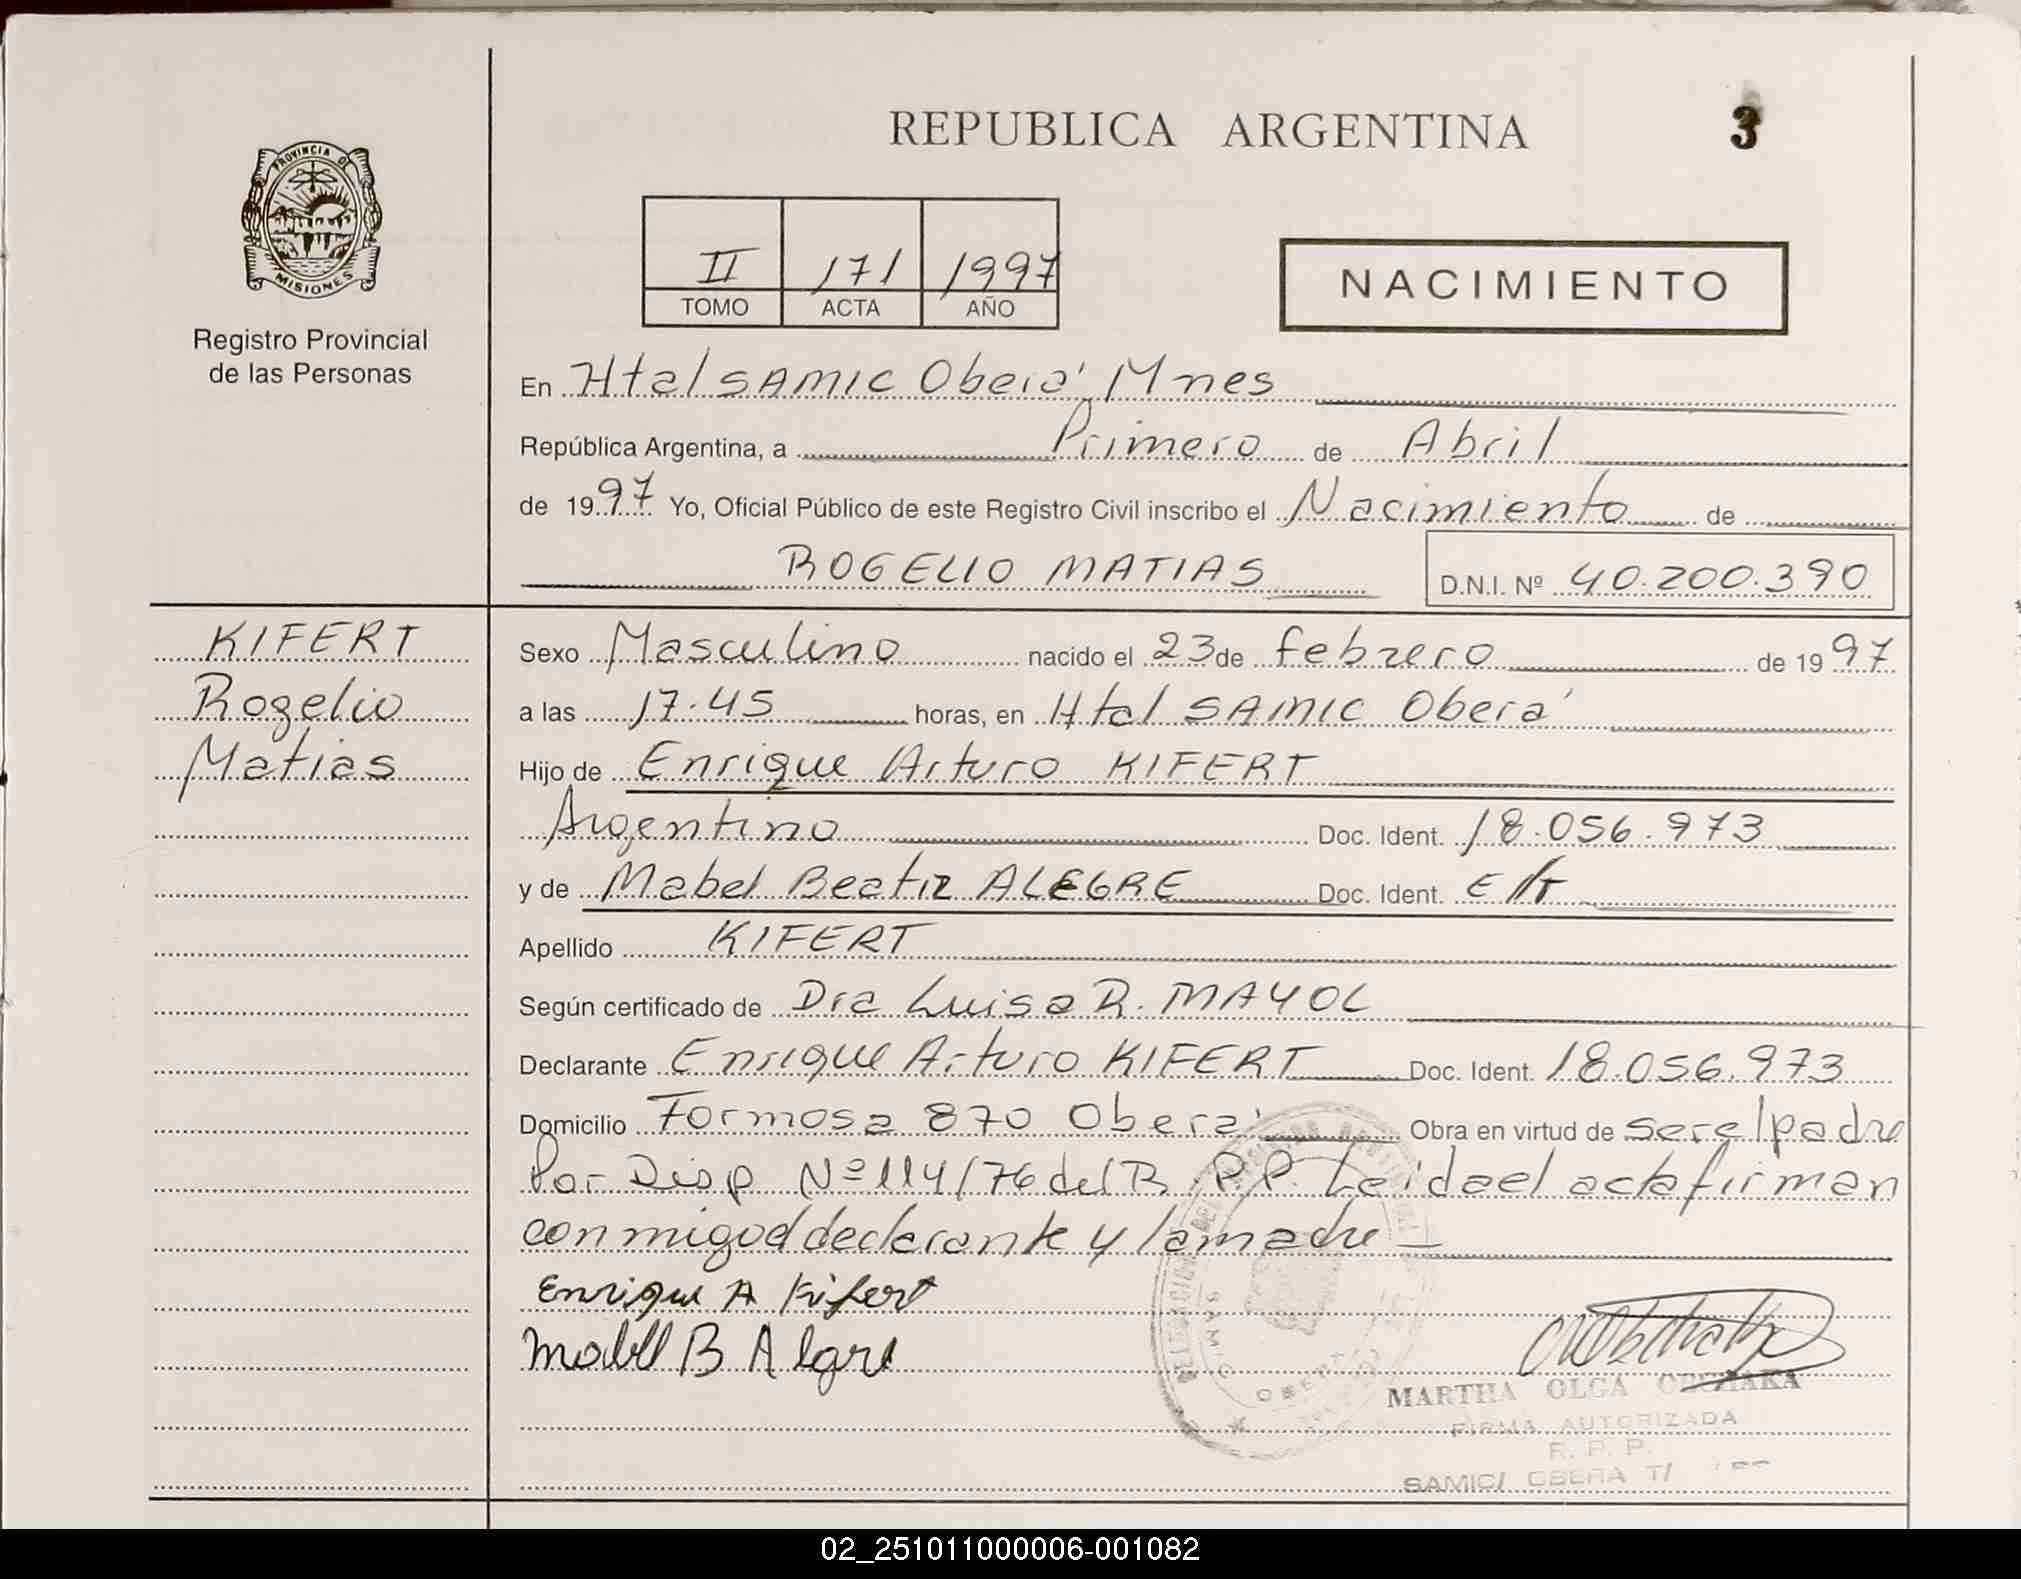 REPUBLICA ARGENTINA
3
PROVINCIA DE
MISIONES
Registro Provincial
de las Personas
II 171 1997
TOMO ACTA AÑO
NACIMIENTO
En Htal SAMIC Oberá Mnes
República Argentina, a Primero de Abril
de 1997 Yo, Oficial Público de este Registro Civil inscribo el Nacimiento de
ROGELIO MATIAS D.N.I. Nº 40.200.390
KIFERT
Rogelio
Matias
Sexo Masculino nacido el 23 de febrero de 1997
a las 17.45 horas, en Htal SAMIC Oberá
Hijo de Enrique Arturo KIFERT
Argentino Doc. Ident. 18.056.973
y de Mabel Beatiz ALEGRE Doc. Ident. E/T
Apellido KIFERT
Según certificado de Dra Luisa R. MAYOL
Declarante Enrique Arturo KIFERT Doc. Ident. 18.056.973
Domicilio Formosa 870 Oberá Obra en virtud de ser el padre
Por Disp Nº 114/76 del R.P.P. Leida el acta firman
conmigo el declarante y la madre
Enrique A Kifert
Mabel B Alegre
MARTHA OLGA
FIRMA AUTORIZADA
R. P. P.
SAMIC/ OBERA T/
02_251011000006-001082